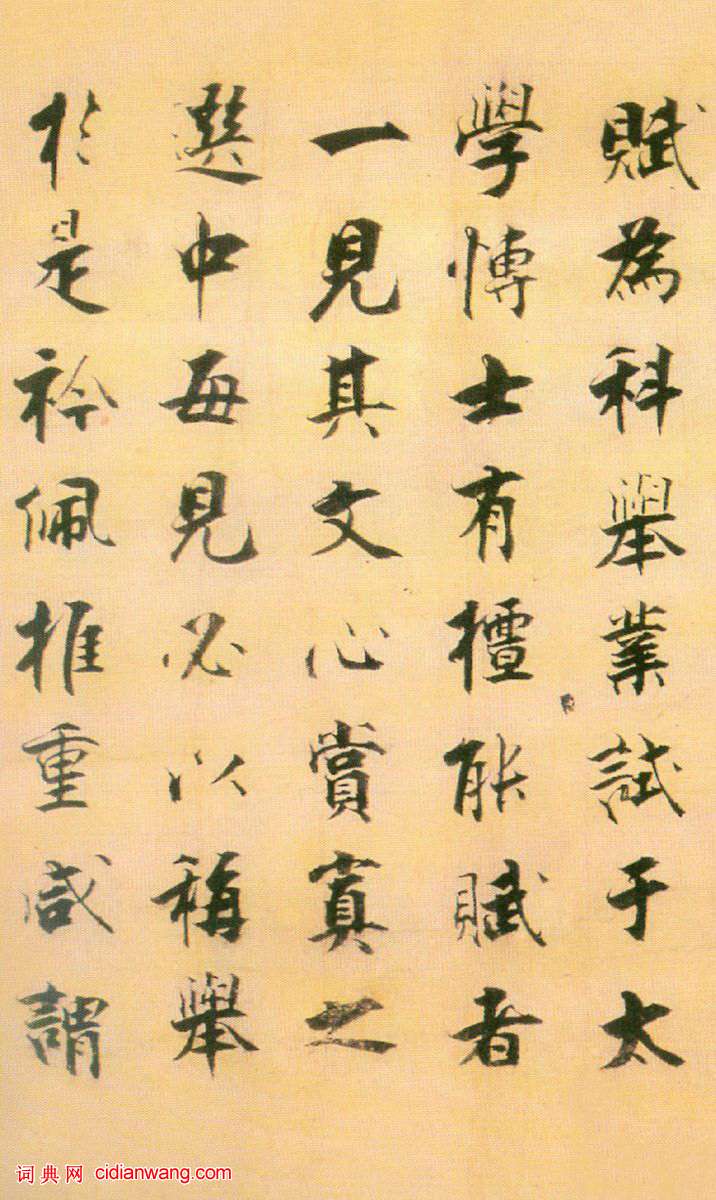 賦為科舉業試于太
學博士有檀能賦者
一見其文心賞寘之
選中每見必以稱舉
於是衿佩推重咸謂
词典网 cidianwang.com